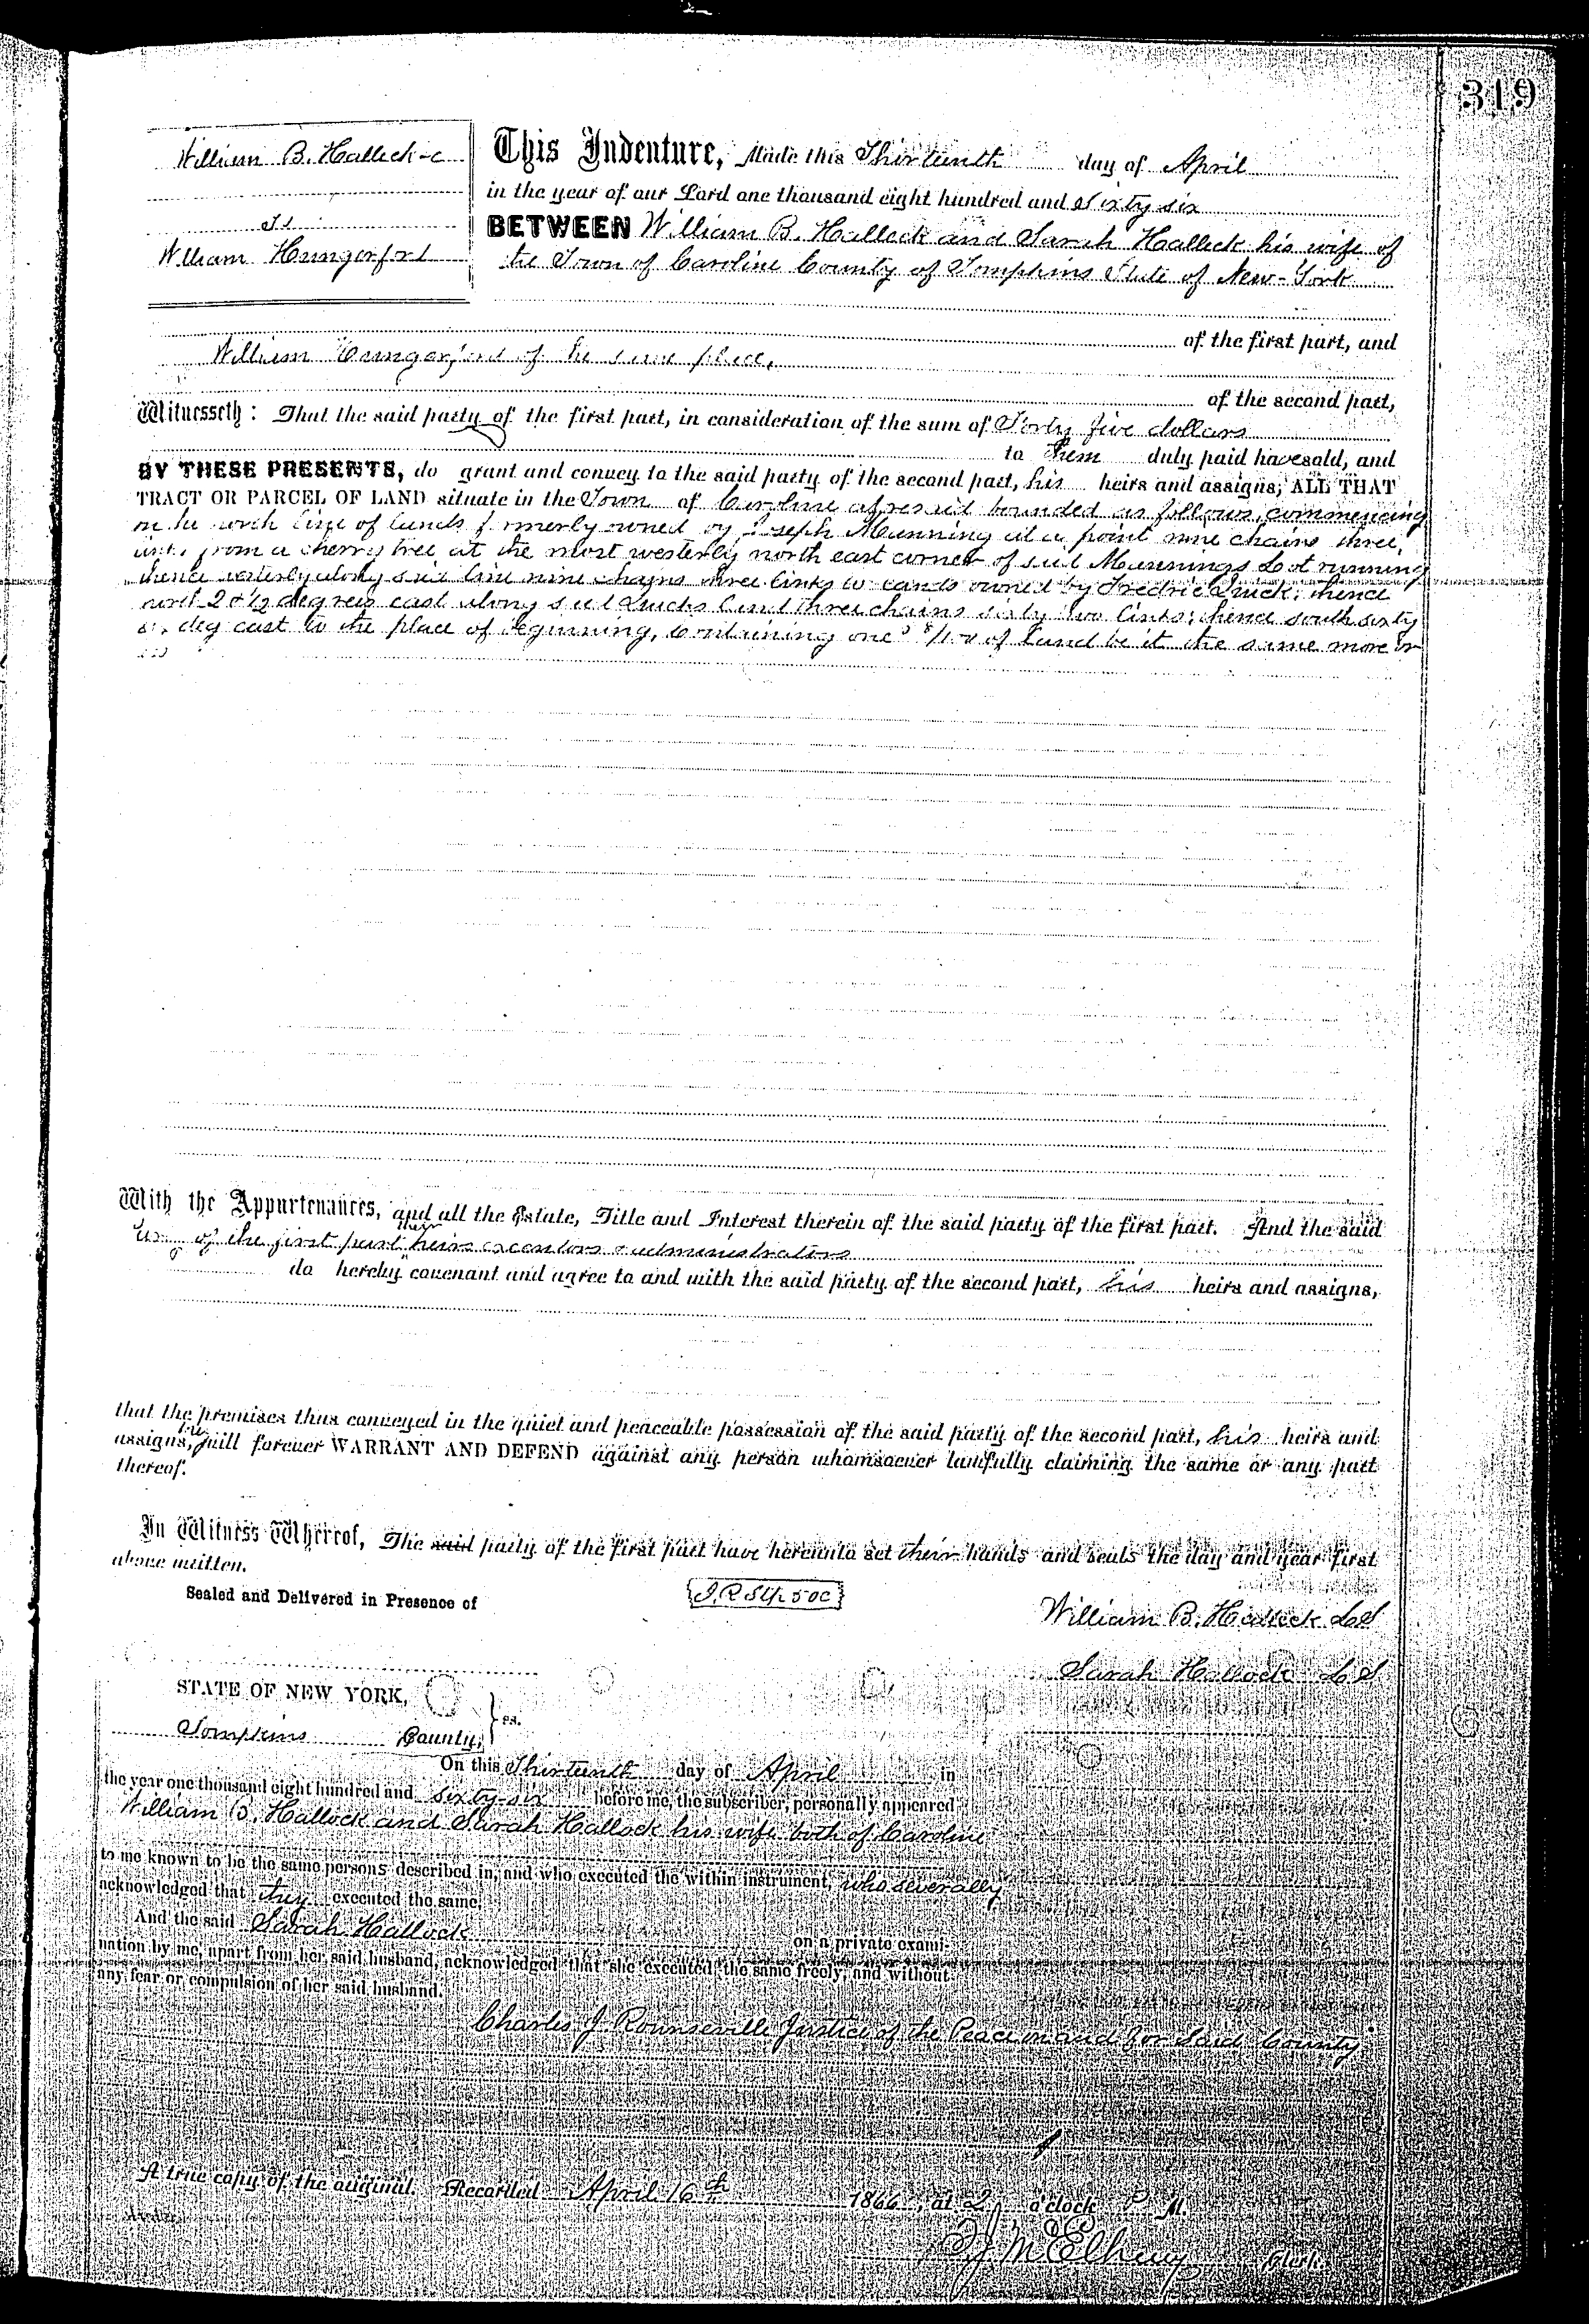 319
William B. Halleck
To
William Hungerford
This Indenture, Made this Thirteenth day of April
in the year of our Lord one thousand eight hundred and Sixty six
BETWEEN William B. Halleck and Sarah Halleck his wife of
the Town of Caroline County of Tompkins State of New-York
of the first part, and
William Hungerford of the same place,
of the second part,
Witnesseth: That the said party of the first part, in consideration of the sum of Forty five dollars
to them duly paid have sold, and
BY THESE PRESENTS, do grant and convey to the said party of the second part, his heirs and assigns, ALL THAT
TRACT OR PARCEL OF LAND situate in the Town of Caroline aforesaid bounded as follows, commencing
on the north line of lands formerly owned by Joseph Munning at a point nine chains three
links from a cherry tree at the most westerly north east corner of said Munnings Lot running
thence westerly along said line nine chains three links to lands owned by Fredric Quick; thence
north 28½ degrees east along said Quicks land three chains sixty two links; thence south sixty
deg east to the place of beginning, containing one /100 of land be it the same more or
less
With the Appurtenances, and all the Estate, Title and Interest therein of the said party of the first part. And the said
of the first part their heirs executors & administrators
do hereby covenant and agree to and with the said party of the second part, his heirs and assigns,
that the premises thus conveyed in the quiet and peaceable possession of the said party of the second part, his heirs and
assigns, will forever WARRANT AND DEFEND against any person whomsoever lawfully claiming the same or any part
thereof.
In Witness Whereof, The said party of the first part have hereunto set their hands and seals the day and year first
above written.
Sealed and Delivered in Presence of
I.R.St. 50c
William B. Halleck L S
Sarah Hallock L S
STATE OF NEW YORK,
Tompkins County, } ss.
On this Thirteenth day of April in
the year one thousand eight hundred and sixty-six before me, the subscriber, personally appeared
William B. Hallock and Sarah Hallock his wife both of Caroline
to me known to be the same persons described in, and who executed the within instrument, who severally
acknowledged that they executed the same.
And the said Sarah Hallock on a private exami-
nation by me, apart from her said husband, acknowledged that she executed the same freely, and without
any fear or compulsion of her said husband.
Charles J. Rounseville Justice of the Peace in and for Said County
A true copy of the original. Recorded April 16th 1866, at 2 o'clock P M.
McElheny Clerk.